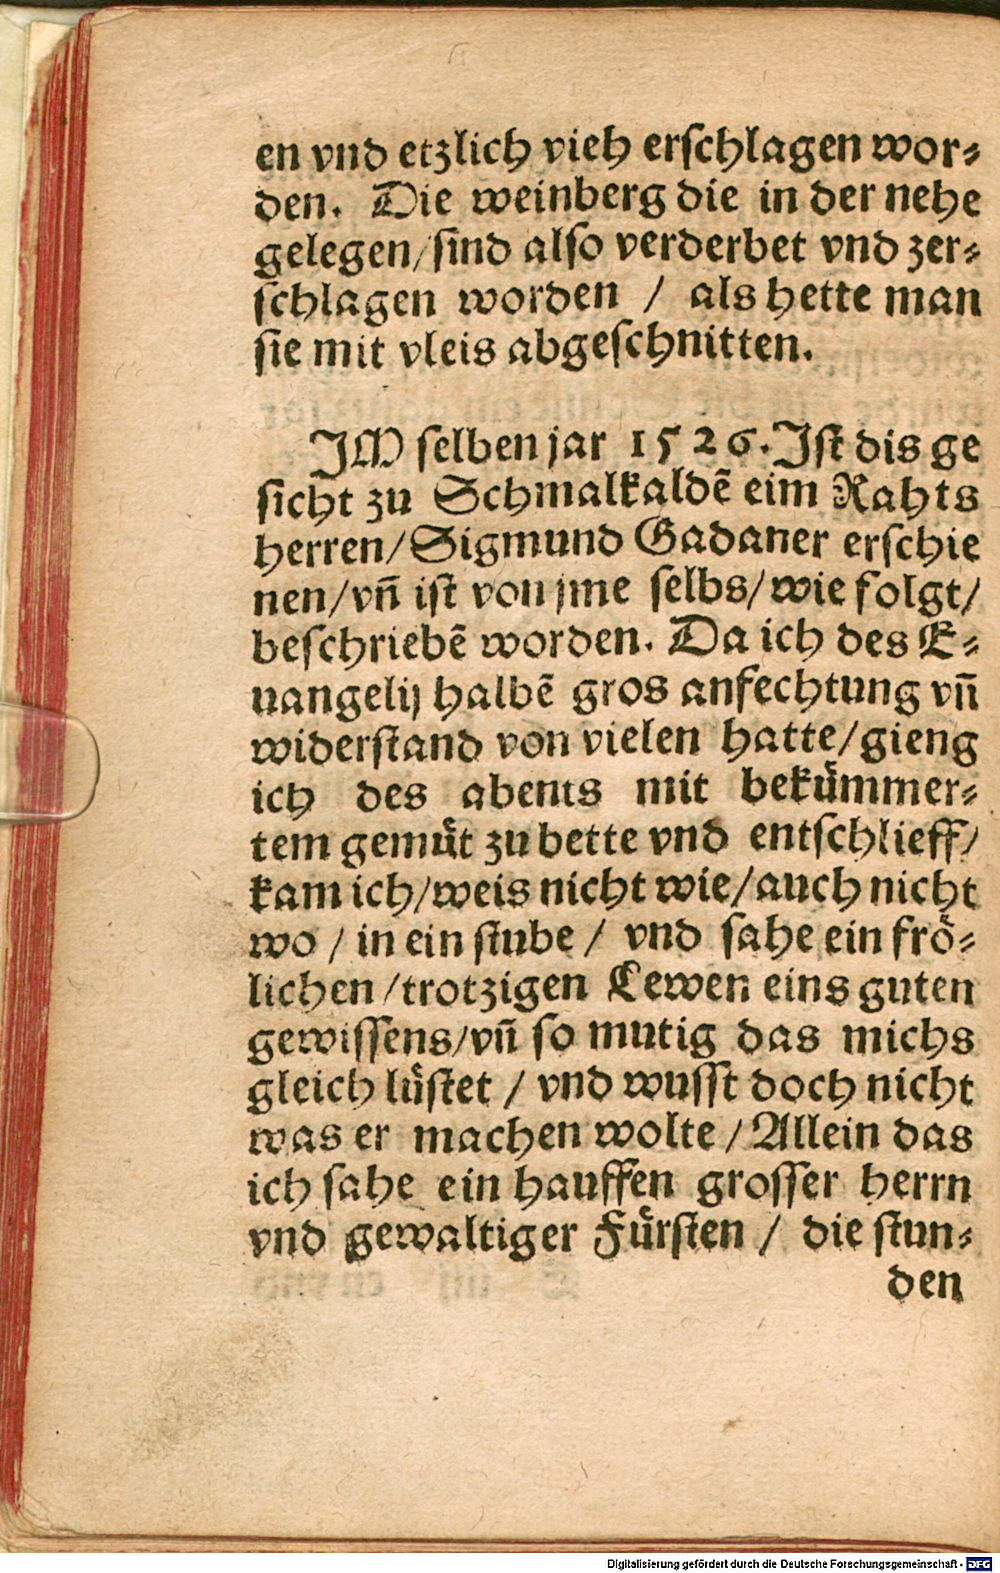 en vnd etzlich vieh erschlagen wor⸗
den. Die weinberg die in der nehe
gelegen/sind also verderbet vnd zer⸗
schlagen worden / als hette man
sie mit vleis abgeschnitten.
JM selben jar 1526. Jst dis ge
sicht zu Schmalkaldẽ eim Rahts
herren/Sigmund Gadaner erschie
nen/vñ ist von jme selbs/wie folgt/
beschriebẽ worden. Da ich des E⸗
uangelij halbẽ gros anfechtung vñ
widerstand von vielen hatte/gieng
ich des abents mit bekümmer⸗
tem gemüt zu bette vnd entschlieff/
kam ich/weis nicht wie/auch nicht
wo / in ein stube / vnd sahe ein frö⸗
lichen/trotzigen Lewen eins guten
gewissens/vñ so mutig das michs
gleich lüstet / vnd wusst doch nicht
was er machen wolte / Allein das
ich sahe ein hauffen grosser herrn
vnd gewaltiger Fürsten / die stun⸗
den
Digitalisierung gefördert durch die Deutsche Forschungsgemeinschaft - DFG